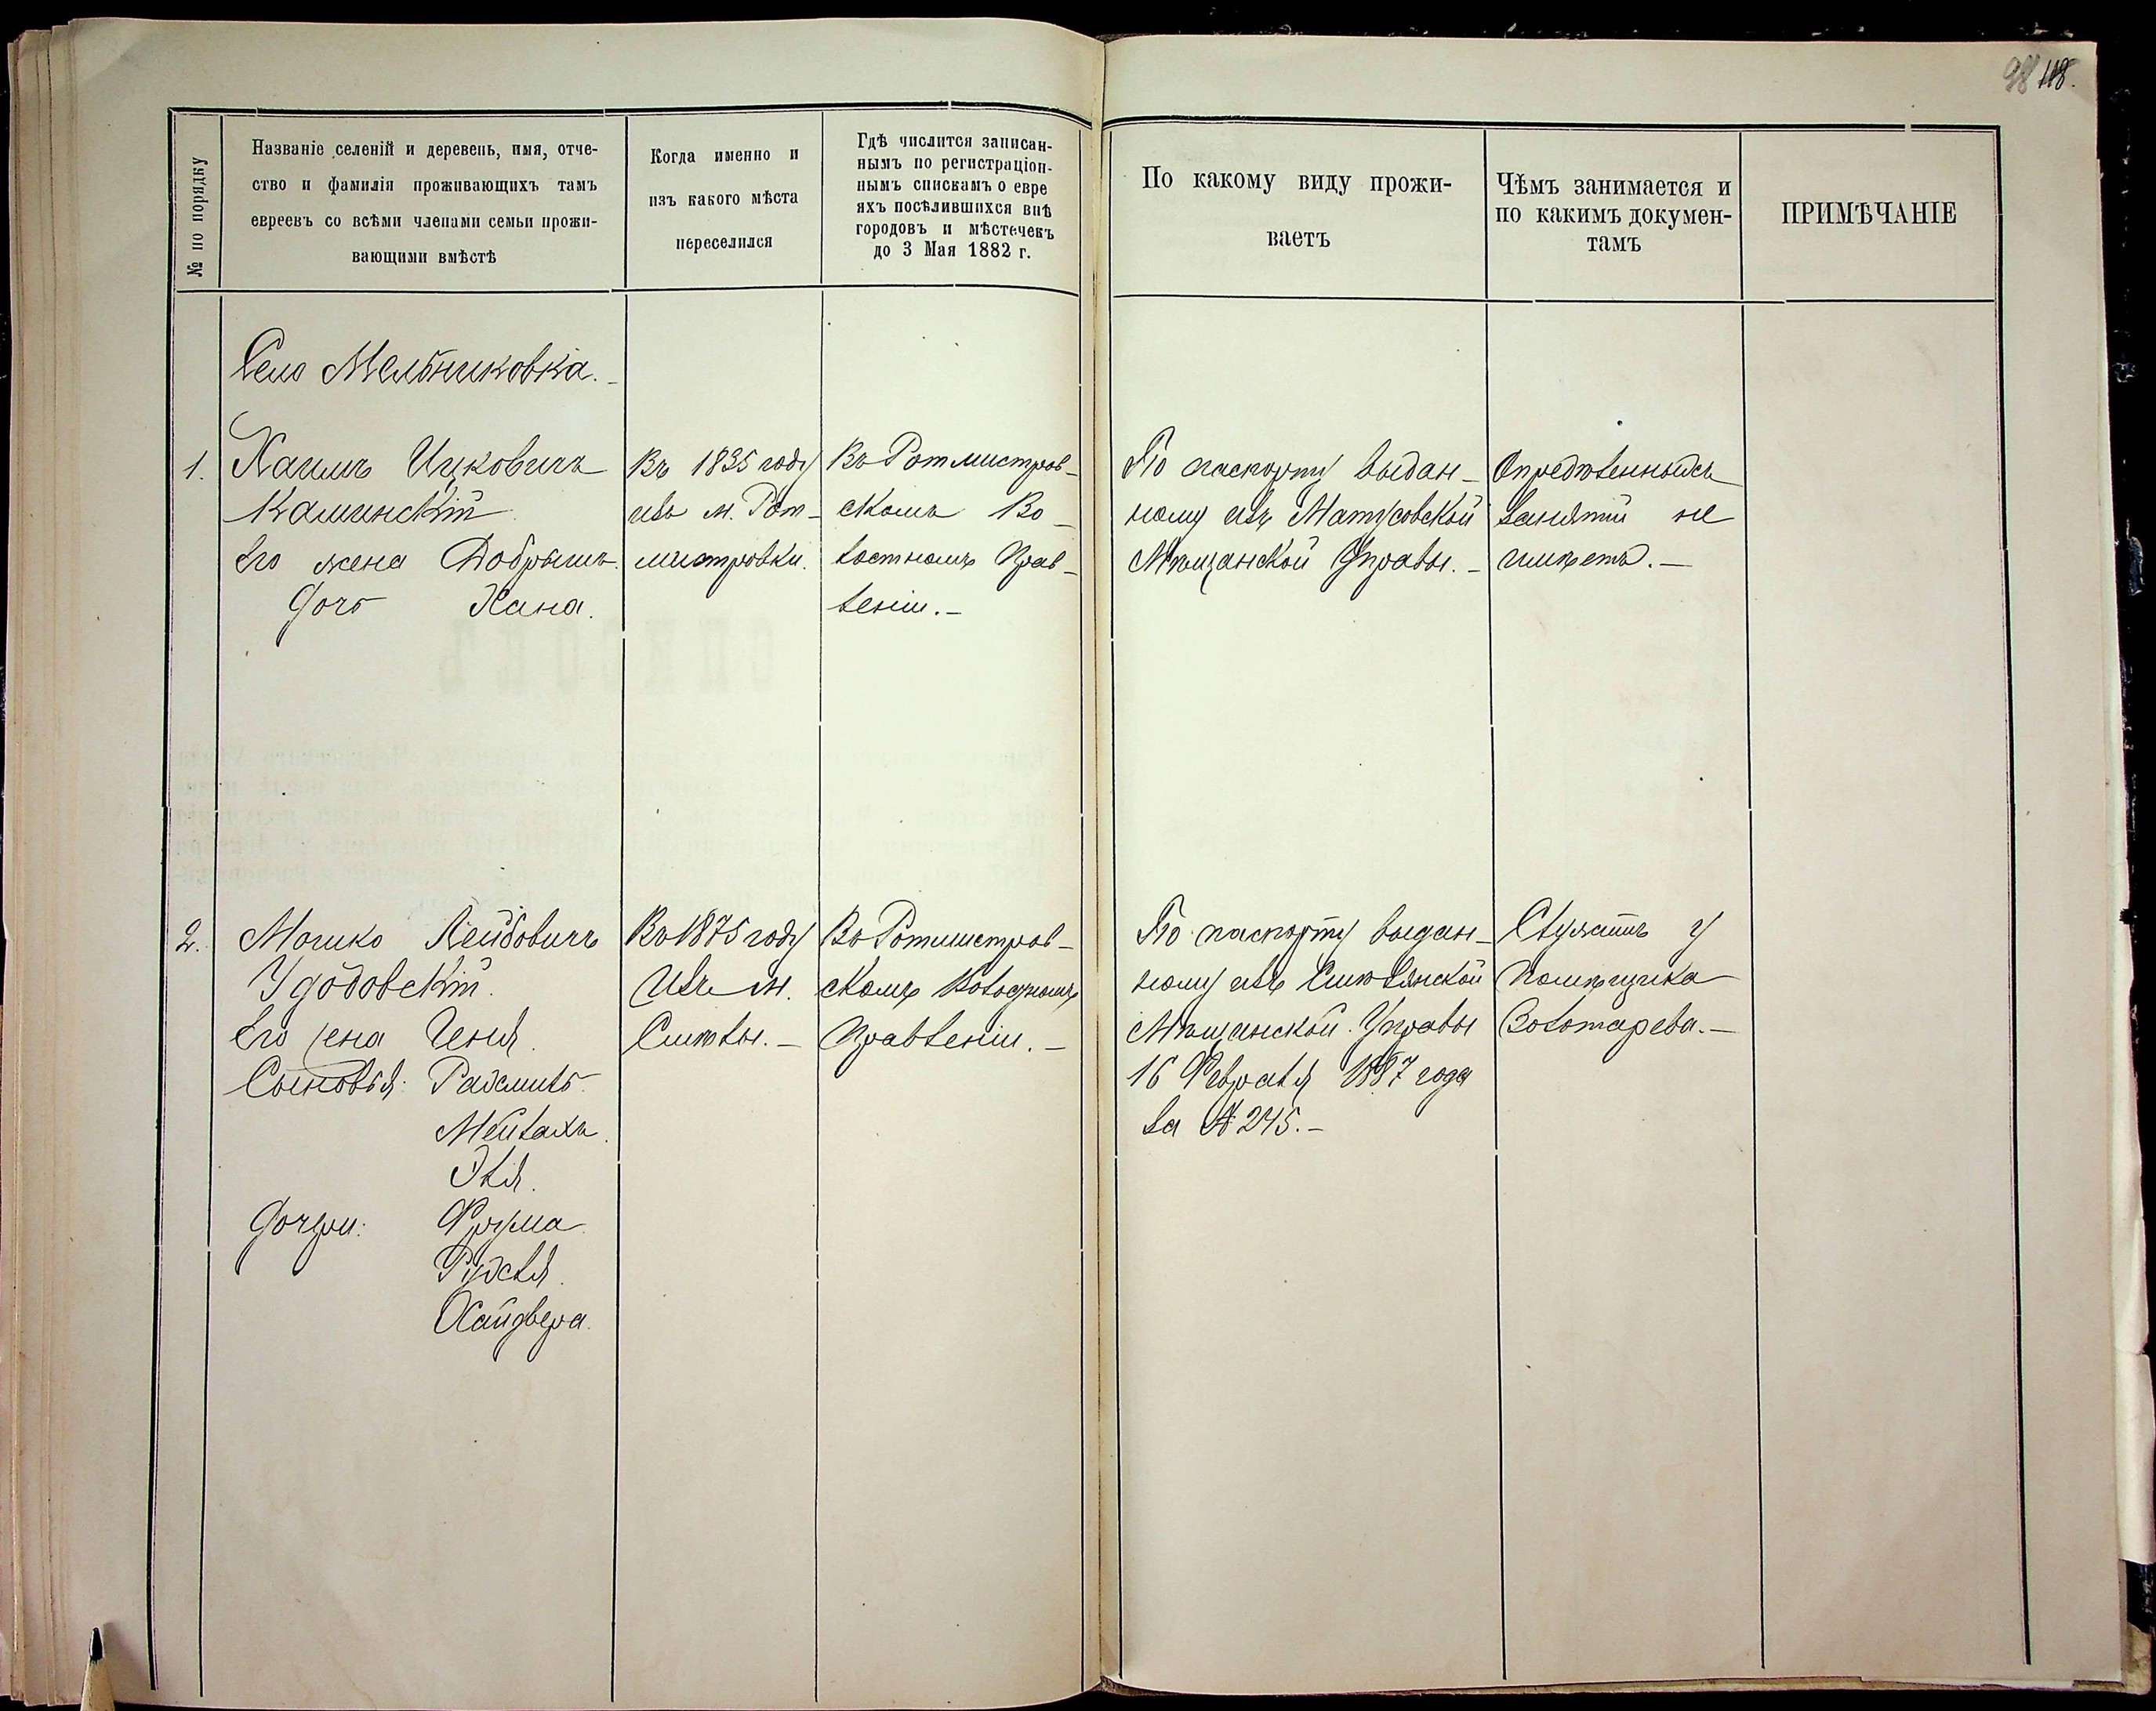 98 118.
№ по порядку
Названіе селеній и деревень, имя, отче-
ство и фамилія проживающихъ тамъ
евреевъ со всѣми членами семьи прожи-
вающими вмѣстѣ
Когда именно и
изъ какого мѣста
переселился
Гдѣ числится записан-
нымъ по регистраціон-
нымъ спискамъ о евре
яхъ посѣлившихся внѣ
городовъ и мѣстечекъ
до 3 Мая 1882 г.
По какому виду прожи-
ваетъ
Чѣмъ занимается и
по какимъ докумен-
тамъ
ПРИМѢЧАНІЕ
Село Мельниковка.
1.
Хаимъ Ицковичъ
Каминскій
Его жена Добрышъ.
Дочь Хана.
Въ 1835 году
изъ м. Рот-
мистровки.
Въ Ротмистров-
скомъ Во-
лостномъ Прав-
леніи.-
По паспорту выдан-
ному изъ Матусовской
Мѣщанской Управы.-
Опредѣленныхъ
занятій не
имѣетъ.-
2.
Мошко Лейбовичъ
Удодовскій.
Его жена Геня.
Сыновья:
Мейлахъ.
Эля.
Дочери: Фрума
Рухля.
Хайдвера.
Въ 1875 году
Изъ м.
Смѣлы.-
Въ Ротмистров-
скомъ Волостномъ
Правленіи.-
По паспорту выдан-
ному изъ Смѣлянской
Мѣщанской Управы
16 Февраля 1887 года
за № 245.-
Служитъ у
помѣщика
Золотарева.-